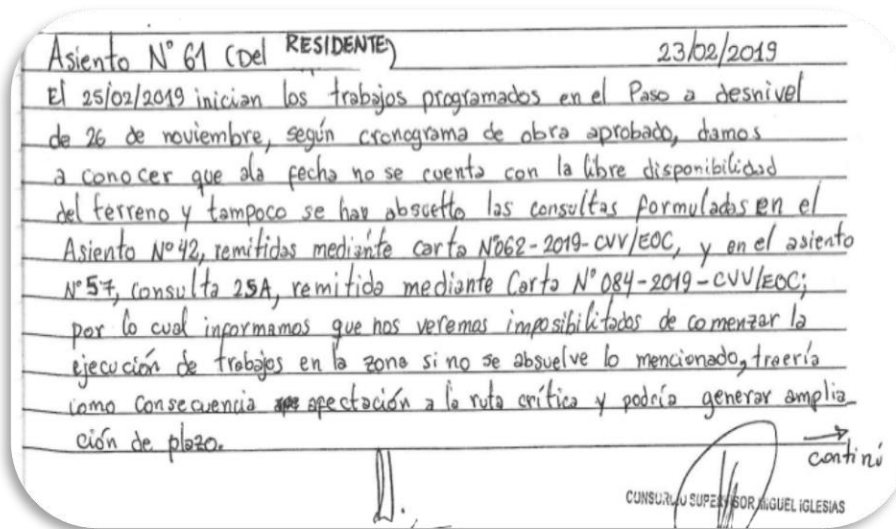 Asiento N° 61 (Del RESIDENTE) 23/02/2019
El 25/02/2019 inician los trabajos programados en el Paso a desnivel
de 26 de noviembre, según cronograma de obra aprobado, damos
a conocer que ala fecha no se cuenta con la libre disponibilidad
del terreno y tampoco se han absuelto las consultas formuladas en el
Asiento N° 42, remitidas mediante carta N°062-2019-CVV/EOC, y en el asiento
N° 57, consulta 25A, remitida mediante Carta N° 084-2019-CVV/EOC;
por lo cual informamos que nos veremos imposibilitados de comenzar la
ejecución de trabajos en la zona si no se absuelve lo mencionado, traería
como consecuencia afectación a la ruta crítica y podría generar amplia
ción de plazo.
continú
SUPERVISOR MIGUEL IGLESIAS